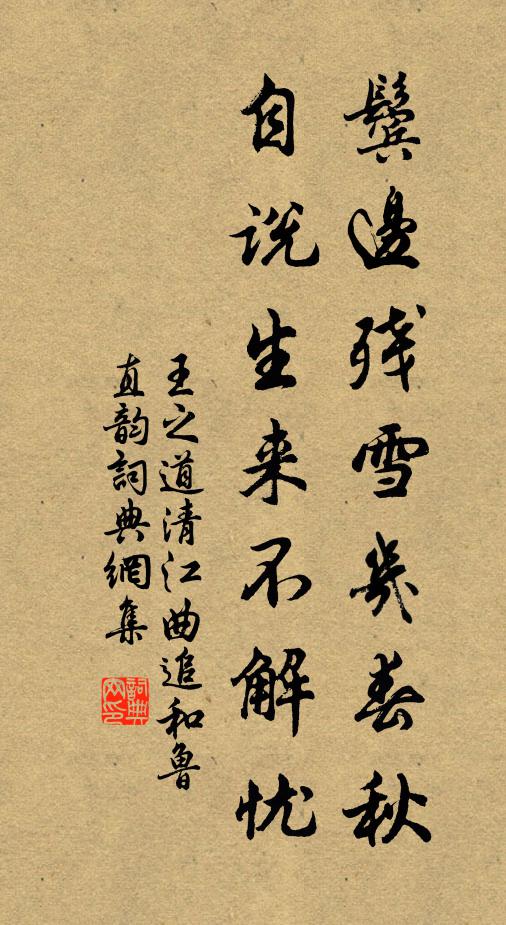 鬓邊残雪幾春秋
自説生来不解忧
王之道清江曲追和鲁
直韵詞典網集
詞典
网印